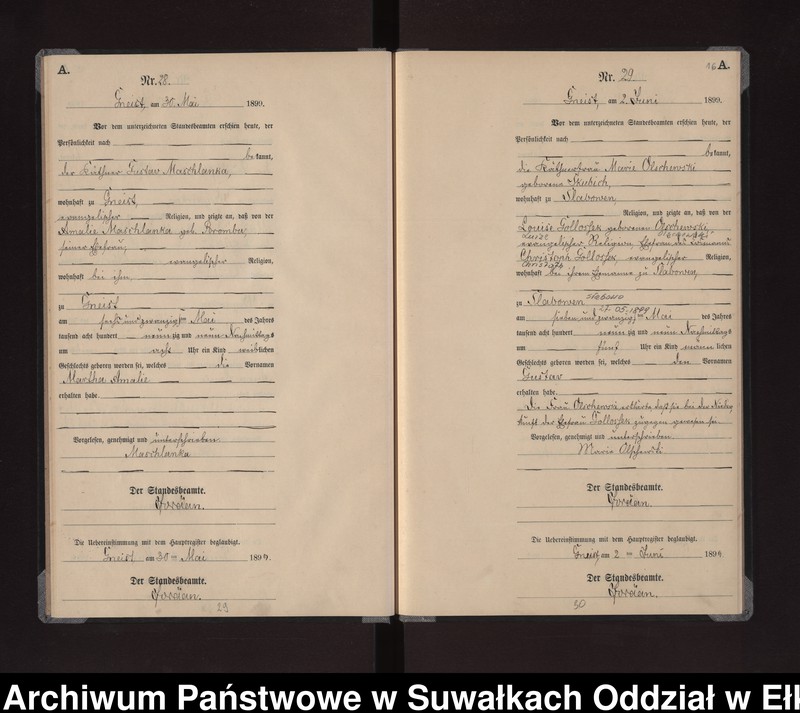 A.
Nr. 28.
Gneist, am 30. Mai 1899.
Vor dem unterzeichneten Standesbeamten erschien heute, der
Persönlichkeit nach
bekannt,
der Käthner Gustav Maschlanka,
wohnhaft zu Gneist,
evangelischer Religion, und zeigte an, daß von der
Amalie Maschlanka geb. Bromba,
seiner Ehefrau,
evangelischer Religion,
wohnhaft bei ihm
zu Gneist
am sechs und zwanzigsten Mai des Jahres
tausend acht hundert neunzig und neun Nachmittags
um acht Uhr ein Kind weiblichen
Geschlechts geboren worden sei, welches die Vornamen
Martha Amalie
erhalten habe.
Vorgelesen, genehmigt und unterschrieben
Maschlanka
Der Standesbeamte.
Jordan.
Die Uebereinstimmung mit dem Hauptregister beglaubigt.
Gneist am 30ten Mai 1899.
Der Standesbeamte.
Jordan.
29
16 A.
Nr. 29
Gneist, am 2. Juni 1899.
Vor dem unterzeichneten Standesbeamten erschien heute, der
Persönlichkeit nach
bekannt,
die Käthnerfrau Marie Olschewski
geborene Skubich,
wohnhaft zu Slabowen,
Religion, und zeigte an, daß von der
Louise geborenen Olschewski,
Luize Olszewski
evangelischer Religion, Ehefrau des
Christoph evangelischer Religion,
Christoph
wohnhaft bei ihrem Ehemanne zu Slabowen,
zu Slabowen Słabowo
27.05.1899
am sieben und zwanzigsten Mai des Jahres
tausend acht hundert neunzig und neun Nachmittags
um fünf Uhr ein Kind männlichen
Geschlechts geboren worden sei, welches den Vornamen
Gustav
erhalten habe.
Die Frau Olschewski erklärte, daß sie bei der Nieder
kunft der Ehefrau zugegen gewesen sei.
Vorgelesen, genehmigt und unterschrieben
Marie Olschewski
Der Standesbeamte.
Jordan.
Die Uebereinstimmung mit dem Hauptregister beglaubigt.
Gneist, am 2ten Juni 1899.
Der Standesbeamte.
Jordan.
30
Archiwum Państwowe w Suwałkach Oddział w Ełk